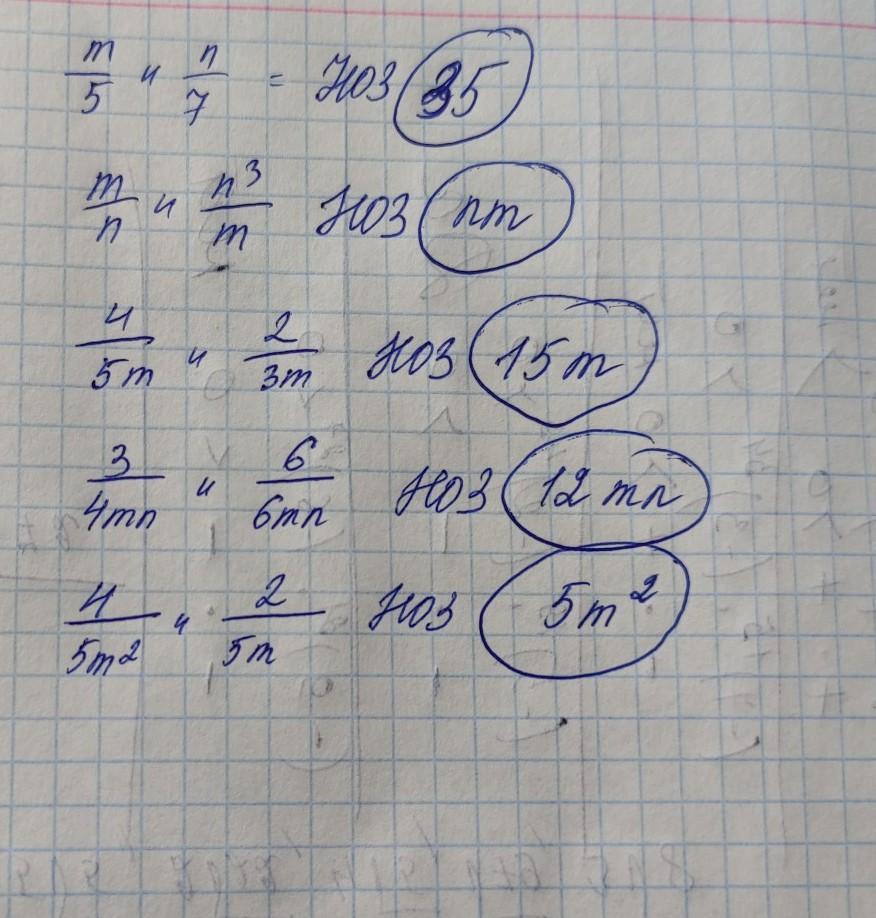 m/5 и n/7 = НОЗ 35
m/n и n³/m НОЗ nm
4/5m и 2/3m НОЗ 15m
3/4mn и 6/6mn НОЗ 12mn
4/5m² и 2/5m НОЗ 5m²